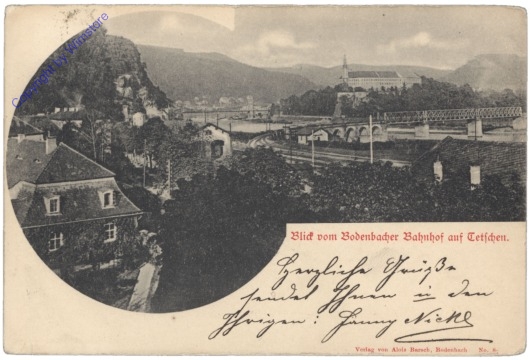 Copyright by Ansichtskartenstore
Blick vom Bodenbacher Bahnhof auf Tetschen.
Herzliche Grüße
sendet Ihnen u den
Ihrigen: Fanny Nickl
Verlag von Alois Barsch, Bodenbach No. 8.